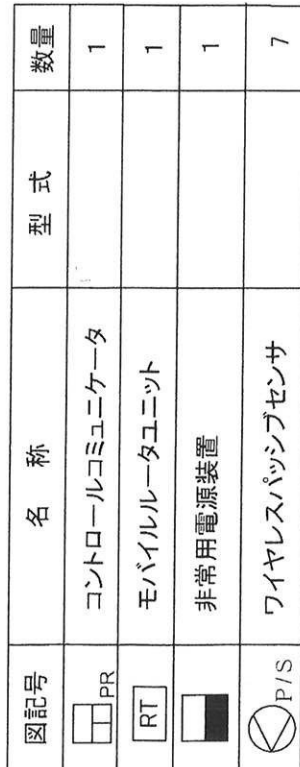 図記号 名称 型式 数量
PR コントロールコミュニケータ 1
RT モバイルルータユニット 1
非常用電源装置 1
P/S ワイヤレスパッシブセンサ 7